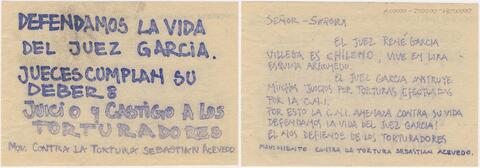 DEFENDAMOS LA VIDA
DEL JUEZ GARCIA.
JUECES CUMPLAN SU
DEBER:
JUICIO Y CASTIGO A LOS
TORTURADORES
MOV. CONTRA LA TORTURA SEBASTIAN ACEVEDO.
SEÑOR-SEÑORA
EL JUEZ RENÉ GARCIA
VILLEGAS ES CHILENO, VIVE EN LIRA
ESQUINA ARGOMEDO.
EL JUEZ GARCIA INSTRUYE
MUCHOS JUICIOS POR TORTURAS EFECTUADAS
POR LA C.N.I.
POR ESTO LA C.N.I. AMENAZA CONTRA SU VIDA
DEFENDAMOS LA VIDA DEL JUEZ GARCIA!
EL NOS DEFIENDE DE LOS TORTURADORES
MOVIMIENTO CONTRA LA TORTURA SEBASTIAN ACEVEDO.